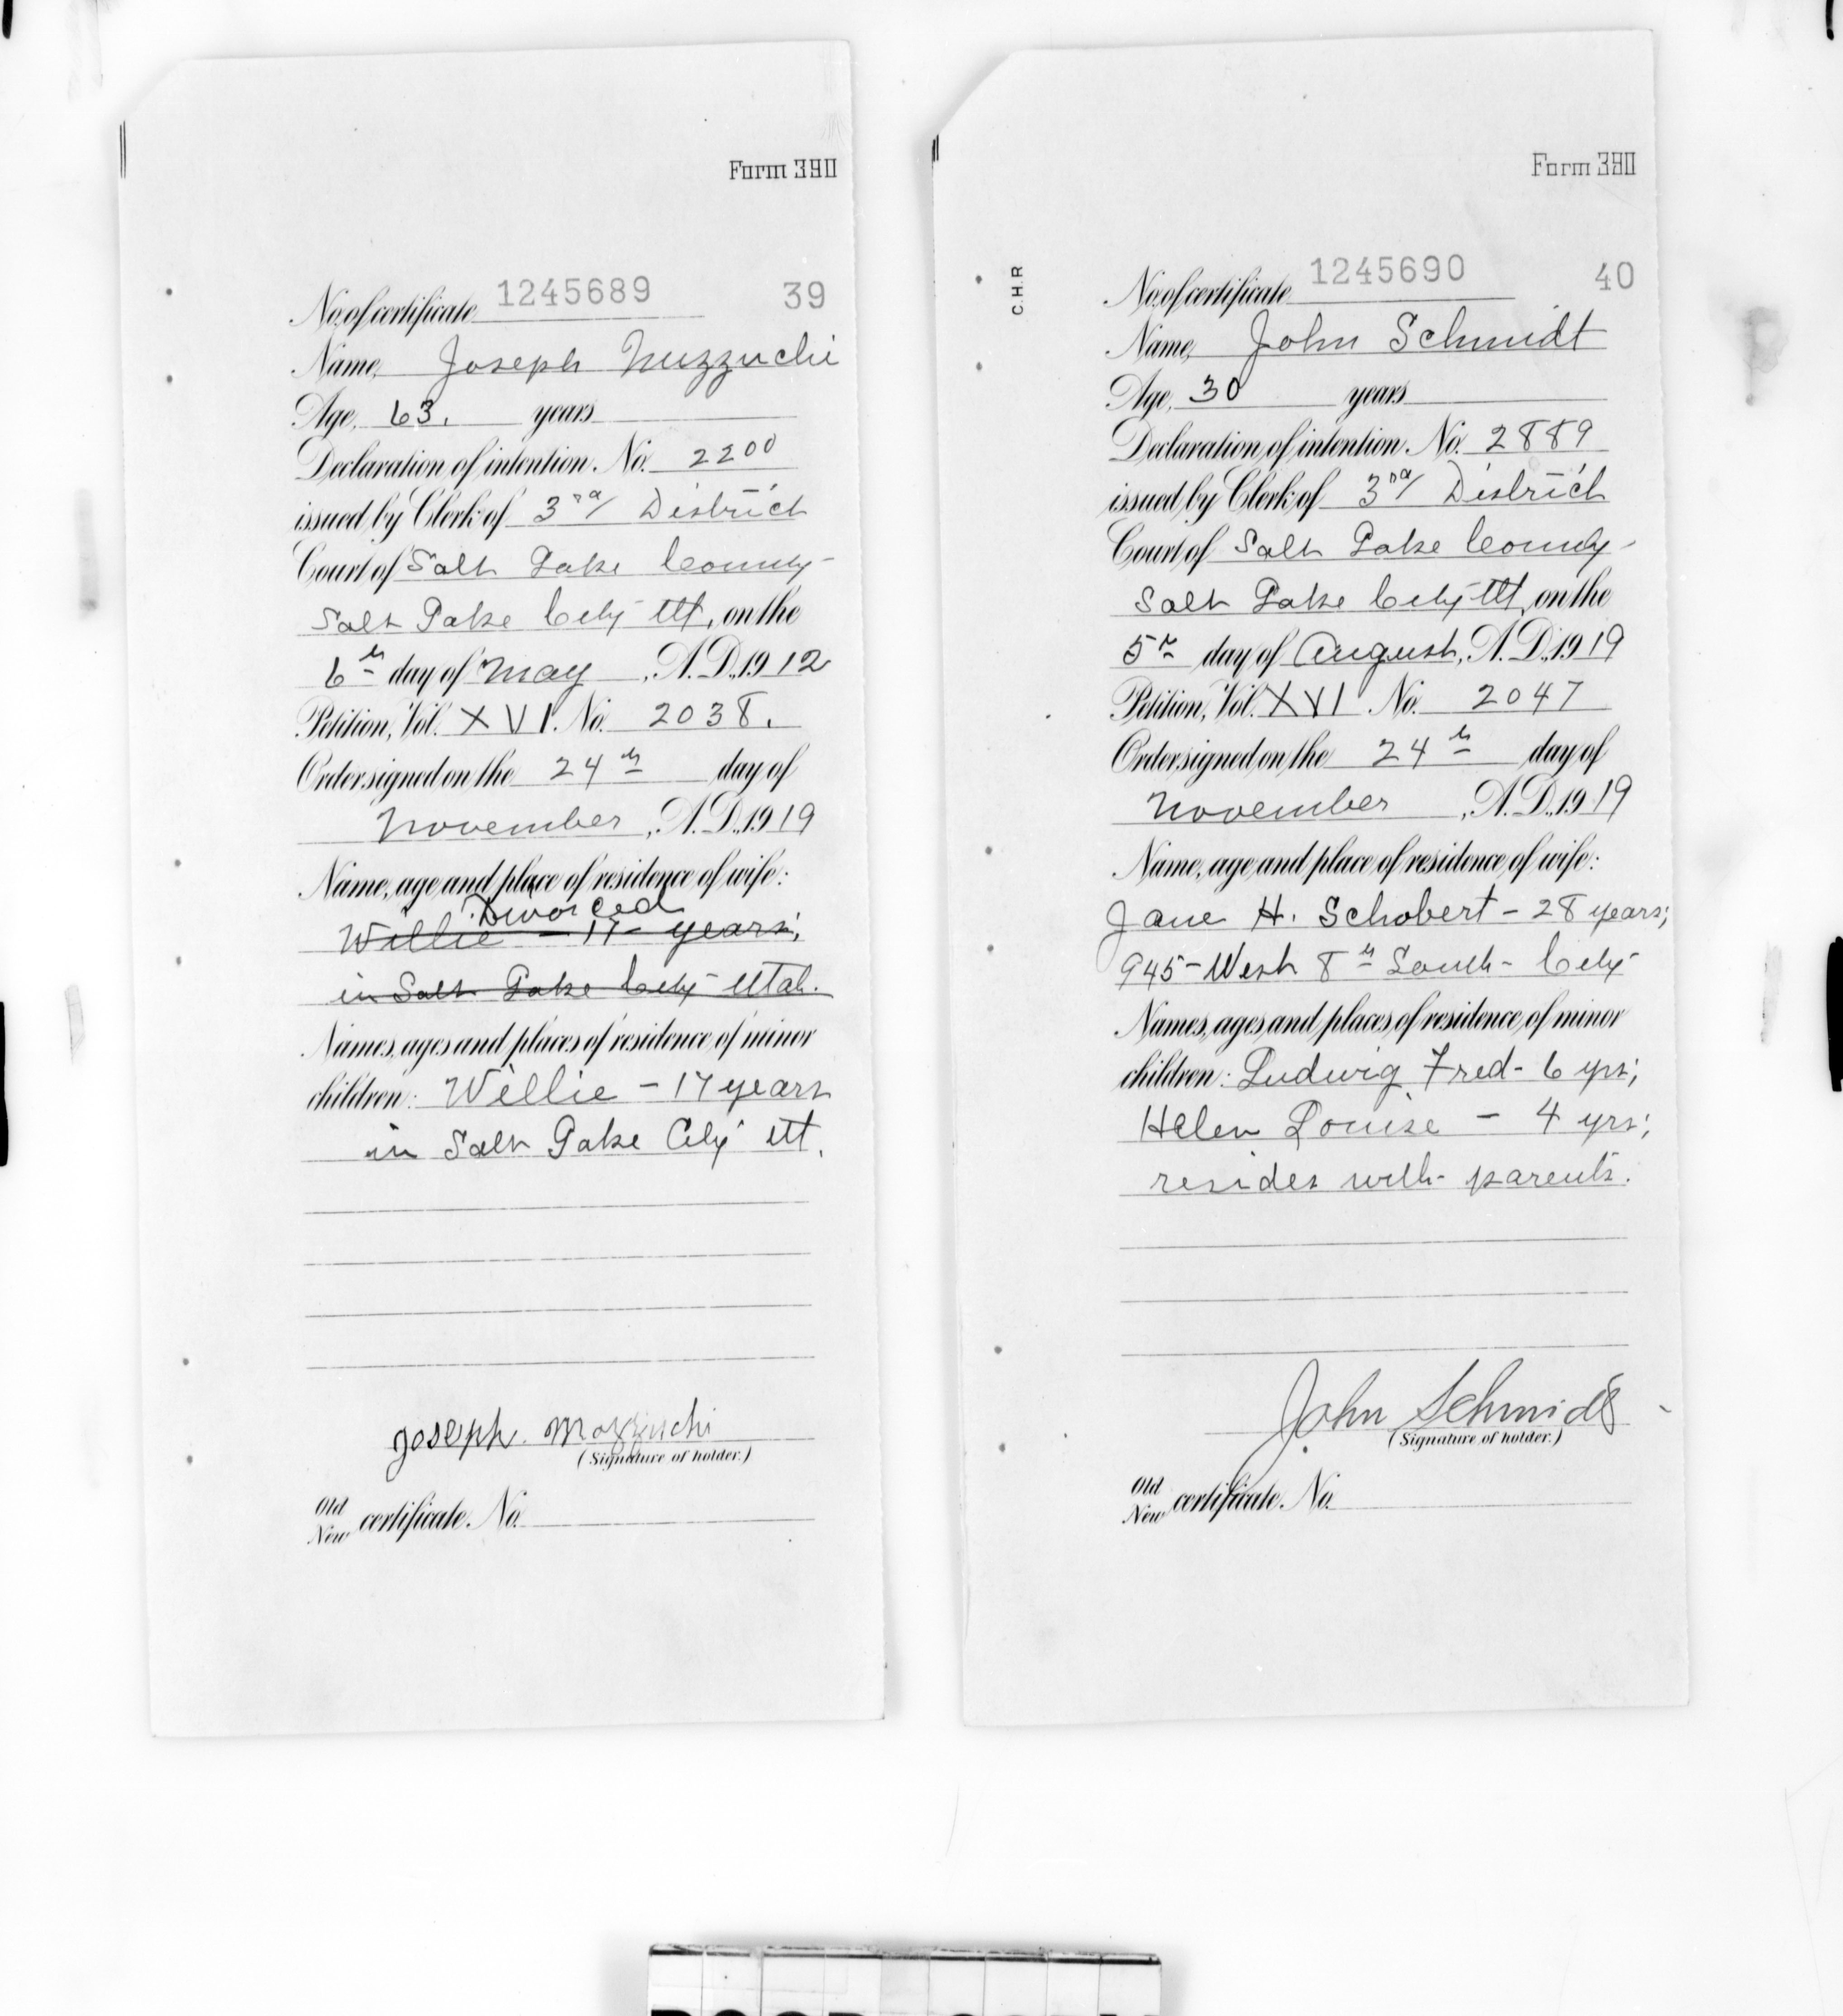 Form 390
No. of certificate 1245689 39
Name, Joseph Muzzuchi
Age, 63. years
Declaration of intention. No. 2200
issued by Clerk of 3rd District
Court of Salt Lake County
Salt Lake City Ut, on the
6th day of May, A.D., 1912
Petition, Vol. XVI. No. 2038.
Order signed on the 24th day of
November, A.D., 1919
Name, age and place of residence of wife:
Divorced
Willie - 17 - years;
in Salt Lake City Utah.
Names, ages and places of residence of minor
children: Willie - 17 years
in Salt Lake City Ut.
Joseph
(Signature of holder.)
Old
New certificate. No.
Form 390
C.H.R
No. of certificate 1245690 40
Name, John Schmidt
Age, 30 years
Declaration of intention. No. 2889
issued by Clerk of 3rd District
Court of Salt Lake County
Salt Lake City Ut, on the
5th day of August, A.D., 1919
Petition, Vol. XVI No. 2047
Order signed on the 24th day of
November, A.D., 1919
Name, age and place of residence of wife:
Jane H. Schobert - 28 years;
945 - West 8th South - City
Names, ages and places of residence of minor
children: Ludwig Fred - 6 yrs;
Helen Louise - 4 yrs;
resides with parents.
John Schmidt
(Signature of holder.)
Old
New certificate. No.